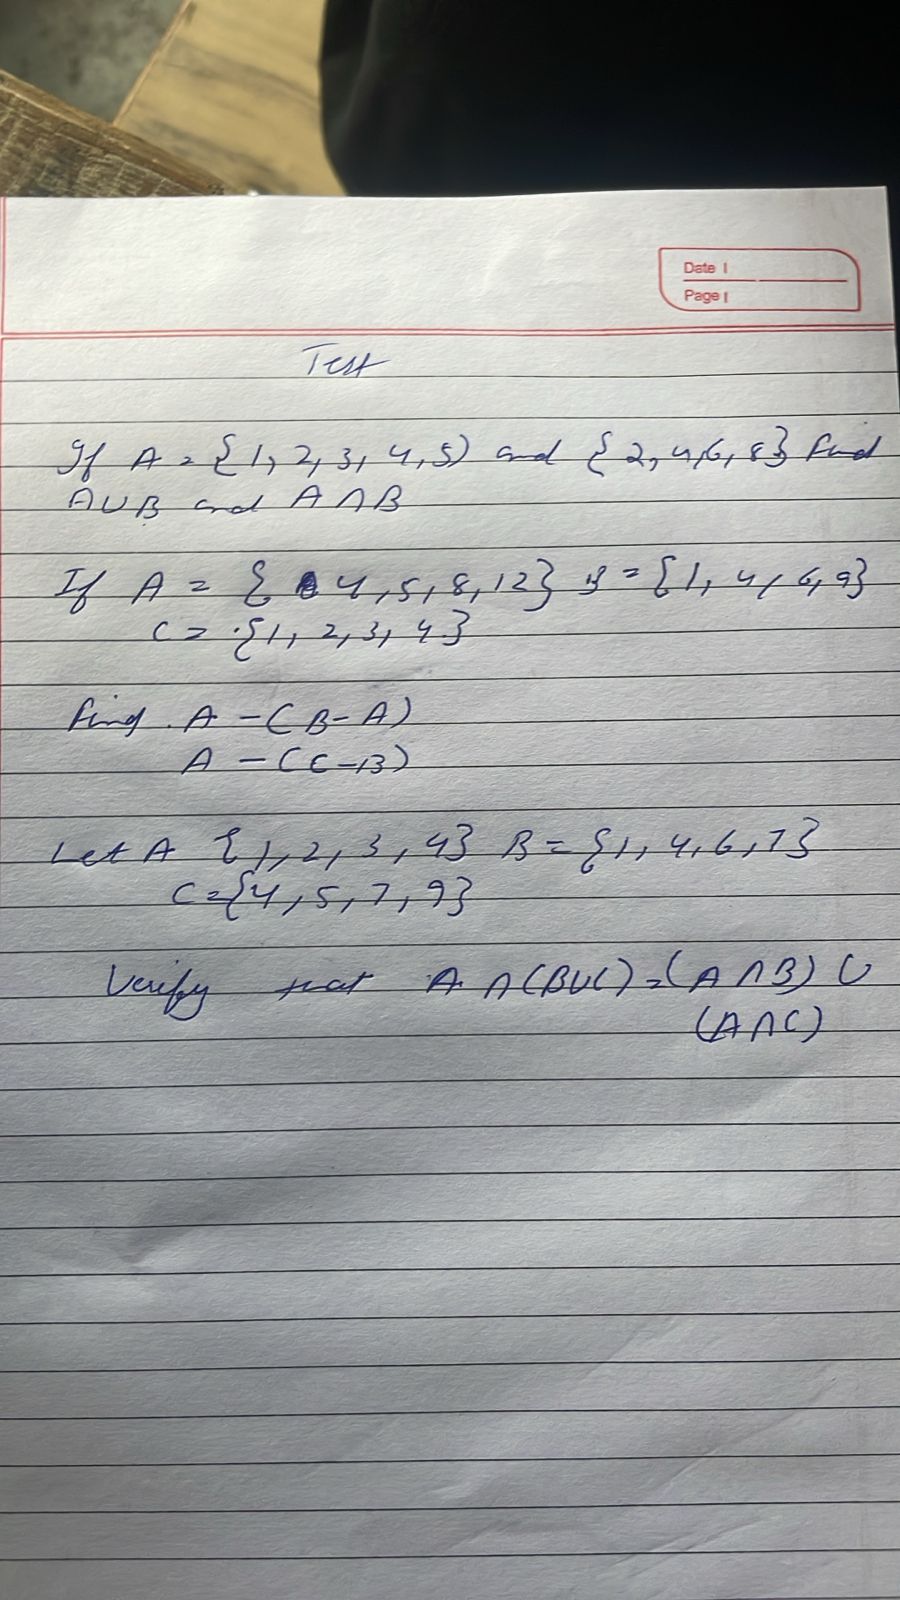 Date
Page
Test
If A = {1, 2, 3, 4, 5) and {2, 4, 6, 8} find
A∪B and A∩B
If A = { 4, 5, 8, 12} B = {1, 4, 6, 9}
C = {1, 2, 3, 4}
find. A - (B - A)
A - (C - B)
Let A {1, 2, 3, 4} B = {1, 4, 6, 7}
C = {4, 5, 7, 9}
Verify that A ∩ (B∪C) = (A∩B) ∪
(A∩C)